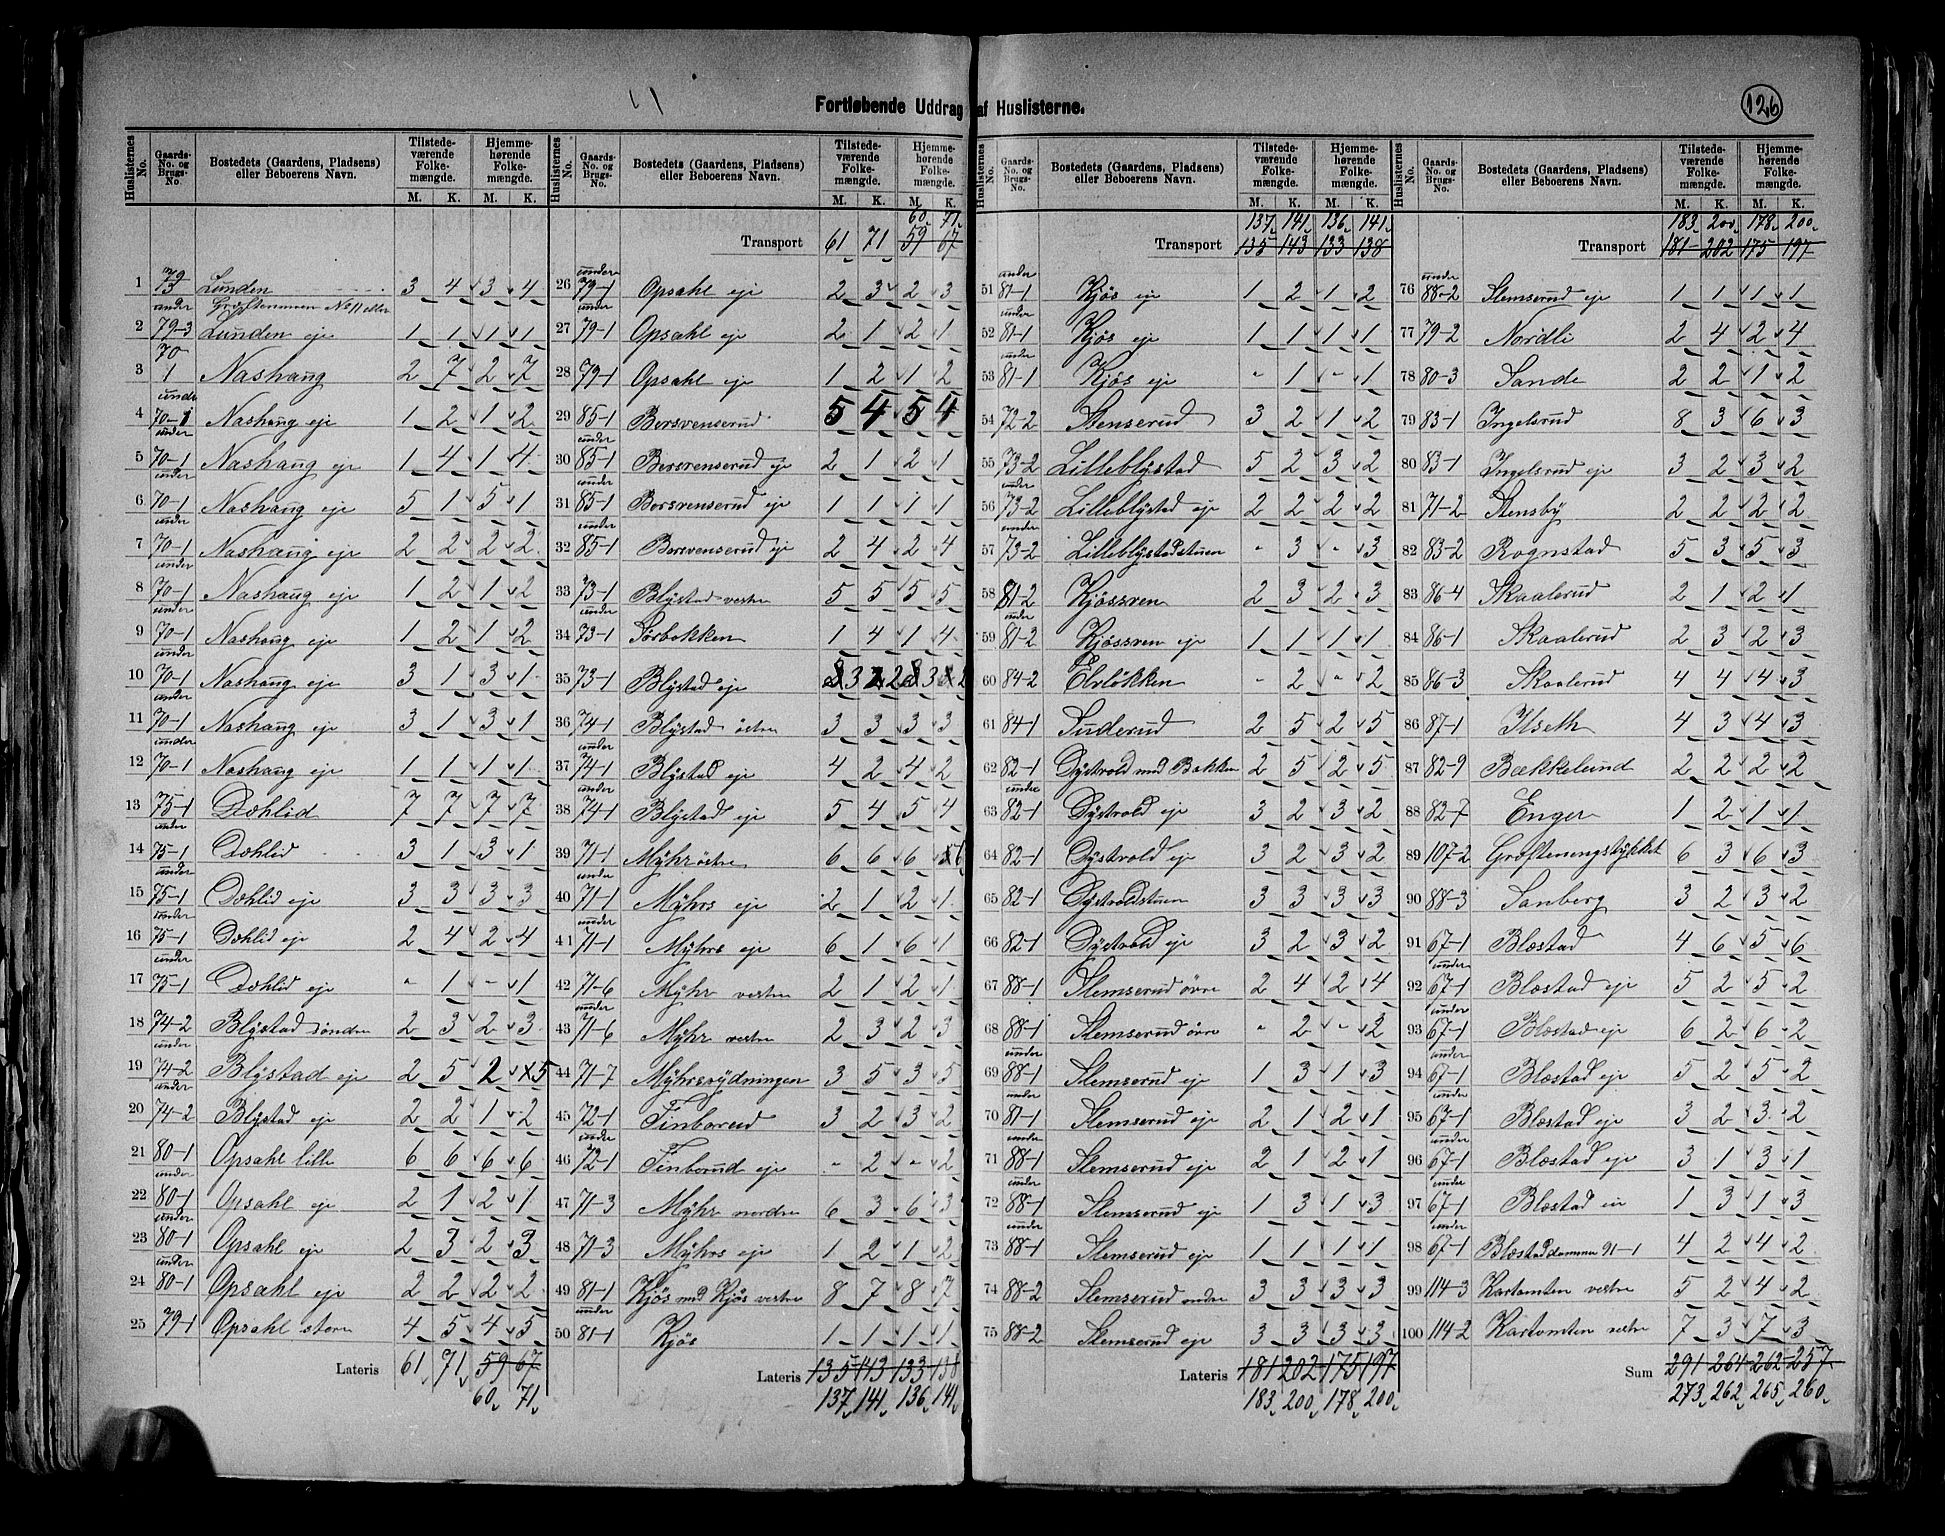 Fortløbende Uddrag af Huslisterne.
126
Huslisternes No. Gaards-No. og Brugs-No. Bostedets (Gaardens, Pladsens) eller Beboerens Navn. Tilstedeværende Folkemængde. M. K. Hjemmehørende Folkemængde. M. K.
1 79-3 Lunden 3 4 3 4
2 under 79-3 Lunden eje 1 1 1 1
3 70-1 Nashaug 2 7 2 7
4 under 70-1 Nashaug eje 1 2 1 2
5 under 70-1 Nashaug eje 1 4 1 4
6 under 70-1 Nashaug eje 5 1 5 1
7 under 70-1 Nashaug eje 2 2 2 2
8 under 70-1 Nashaug eje 1 2 1 2
9 under 70-1 Nashaug eje 1 2 1 2
10 under 70-1 Nashaug eje 3 1 3 1
11 under 70-1 Nashaug eje 3 1 3 1
12 under 70-1 Nashaug eje 1 1 1 1
13 75-1 Dæhlid 7 7 7 7
14 under 75-1 Dæhlid 3 1 3 1
15 under 75-1 Dæhlid eje 3 3 3 3
16 under 75-1 Dæhlid eje 2 4 2 4
17 under 75-1 Dæhlid eje " 1 " 1
18 74-2 Blystad søndre 2 3 2 3
19 under 74-2 Blystad eje 2 5 2 5
20 under 74-2 Blystad eje 2 2 1 2
21 80-1 Opsahl lille 6 6 6 6
22 under 80-1 Opsahl eje 2 1 2 1
23 under 80-1 Opsahl eje 2 3 2 3
24 under 80-1 Opsahl eje 2 2 2 2
25 79-1 Opsahl store 4 5 4 5
Lateris 61 71 59 67
60 71
60 71
Transport 61 71 59 67
26 under 79-1 Opsahl eje 2 3 2 3
27 under 79-1 Opsahl eje 2 1 2 1
28 79-1 Opsahl eje 1 2 1 2
29 85-1 Borsvenserud 5 4 5 4
30 under 85-1 Borsvenserud eje 2 1 2 1
31 under 85-1 Borsvenserud eje 1 1 1 1
32 under 85-1 Borsvenserud eje 2 4 2 4
33 73-1 Blystad vestre 5 5 5 5
34 under 73-1 Sørbokken 1 4 1 4
35 73-1 Blystad eje 3 2 3 2
36 74-1 Blystad østre 3 3 3 3
37 under 74-1 Blystad eje 4 2 4 2
38 under 74-1 Blystad eje 5 4 5 4
39 71-1 Myhr østre 6 6 6 6
40 under 71-1 Myhrs eje 2 1 2 1
41 under 71-1 Myhrs eje 6 1 6 1
42 71-6 Myhr vestre 2 1 2 1
43 under 71-6 Myhr vestre 2 3 2 3
44 71-7 Myhrsrydningen 3 5 3 5
45 72-1 Finborud 3 2 3 2
46 under 72-1 Finborud eje " 2 " 2
47 71-3 Myhr nordre 6 3 6 3
48 under 71-3 Myhrs eje 1 2 1 2
49 81-1 Kjøs med Kjøs vestre 8 7 8 7
50 under 81-1 Kjøs 1 1 1 1
Lateris 135 143 133 138
137 141 136 141
137 141 136 141
Transport 135 143 133 138
51 under 81-1 Kjøs eje 1 2 1 2
52 under 81-1 Kjøs eje 1 1 1 1
53 under 81-1 Kjøs eje " 1 " 1
54 72-2 Stenserud 3 2 1 2
55 73-2 Lilleblystad 5 2 3 2
56 under 73-2 Lilleblystad eje 2 2 2 2
57 under 73-2 Lilleblystadstuen " 3 " 3
58 81-2 Kjøssven 2 3 2 3
59 under 81-2 Kjøssven eje 1 1 1 1
60 84-2 Elvløkken " 2 " 2
61 84-1 Suderud 2 5 2 5
62 82-1 Dystvold med Bakken 2 5 2 5
63 under 82-1 Dystvold eje 3 2 3 2
64 82-1 Dystvold eje 3 2 3 2
65 82-1 Dystvoldstuen 3 3 3 3
66 82-1 Dystvold eje 3 2 3 2
67 88-1 Slemserud øvre 2 4 2 4
68 88-1 Slemserud øvre " 2 " 2
69 under 88-1 Slemserud eje 1 3 1 3
70 under 81-1 Slemserud eje 2 1 2 1
71 under 88-1 Slemserud eje 2 1 2 1
72 under 88-1 Slemserud eje 1 3 1 3
73 under 88-1 Slemserud eje 1 1 1 1
74 88-2 Slemserud nedre 3 3 3 3
75 88-2 Slemserud eje 3 3 3 3
Lateris 181 202 175 197
183 200 178 200
183 200 178 200
Transport 181 202 175 197
76 under 88-2 Slemserud eje 1 1 1 1
77 79-2 Nordli 2 4 2 4
78 80-3 Sande 2 2 1 2
79 83-1 Ingelsrud 8 3 6 3
80 83-1 Ingelsrud eje 3 2 3 2
81 71-2 Stensby 2 2 2 2
82 83-2 Rognstad 5 3 5 3
83 86-4 Skaalerud 2 1 2 1
84 86-1 Skaalerud 2 3 2 3
85 86-3 Skaalerud 4 4 4 3
86 87-1 Ilseth 4 3 4 3
87 82-9 Bækkelund 2 2 2 2
88 82-7 Enger 1 2 1 1
89 107-2 Grøfteningstykket 6 3 6 3
90 88-3 Sanberg 3 2 3 2
91 67-1 Blæstad 4 6 5 6
92 under 67-1 Blæstad eje 5 2 5 2
93 under 67-1 Blæstad eje 6 2 6 2
94 under 67-1 Blæstad eje 5 2 5 2
95 under 67-1 Blæstad eje 3 2 3 2
96 under 67-1 Blæstad eje 3 1 3 1
97 under 67-1 Blæstad eie 1 3 1 3
98 under 67-1 Blæstaddammen 91-1 4 2 4 2
99 114-3 Kartomten vestre 5 2 4 2
100 114-2 Kartomten vestre 7 3 7 3
Sum 291 264 262 257
273 262 265 260